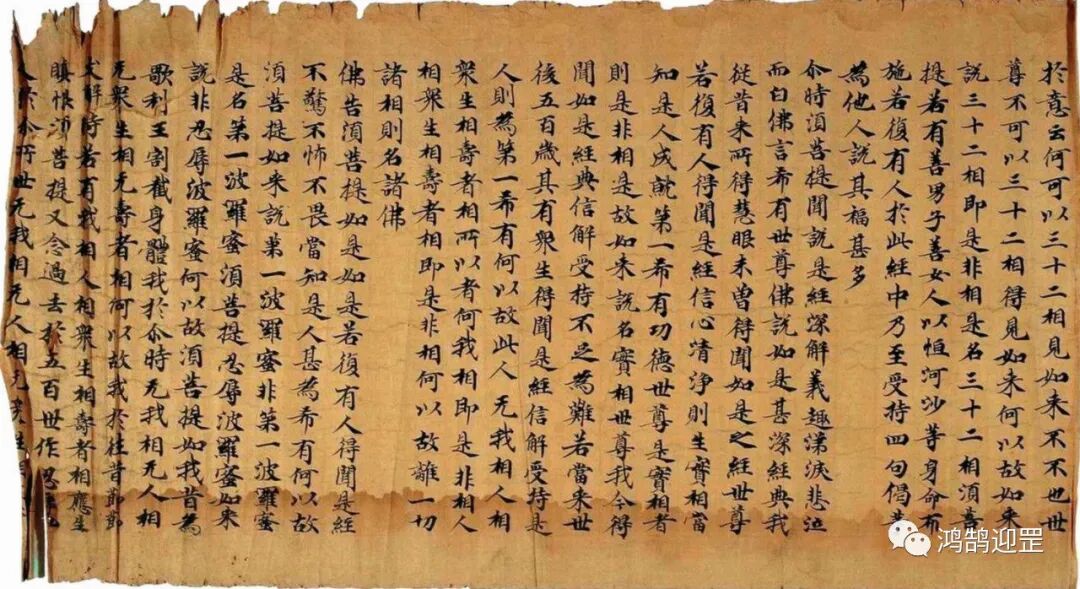 於意云何可以三十二相見如来不不也世
尊不可以三十二相得見如来何以故如来
說三十二相即是非相是名三十二相湏菩
提若有善男子善女人以恒河沙等身命布
施若復有人於此經中乃至受持四句偈等
為他人說其福甚多
尒時湏菩提聞說是經深解義趣涕淚悲泣
而白佛言希有世尊佛說如是甚深經典我
従昔来所得慧眼未曽得聞如是之經世尊
若復有人得聞是經信心清淨則生實相當
知是人成就第一希有功德世尊是實相者
則是非相是故如来說名實相世尊我今得
聞如是經典信解受持不足為難若當来世
後五百歲其有衆生得聞是經信解受持是
人則為第一希有何以故此人无我相人相
衆生相壽者相所以者何我相即是非相人
相衆生相壽者相即是非相何以故離一切
諸相則名諸佛
佛告湏菩提如是如是若復有人得聞是經
不驚不怖不畏當知是人甚為希有何以故
湏菩提如来說第一波羅蜜非第一波羅蜜
是名第一波羅蜜湏菩提忍辱波羅蜜如来
說非忍辱波羅蜜何以故湏菩提如我昔為
歌利王割截身體我於尒時无我相无人相
无衆生相无壽者相何以故我於往昔節節
支解時若有我相人相衆生相壽者相應生
瞋恨湏菩提又念過去於五百世作忍
人於尒所世无我相无人相无
鸿鹄迎罡